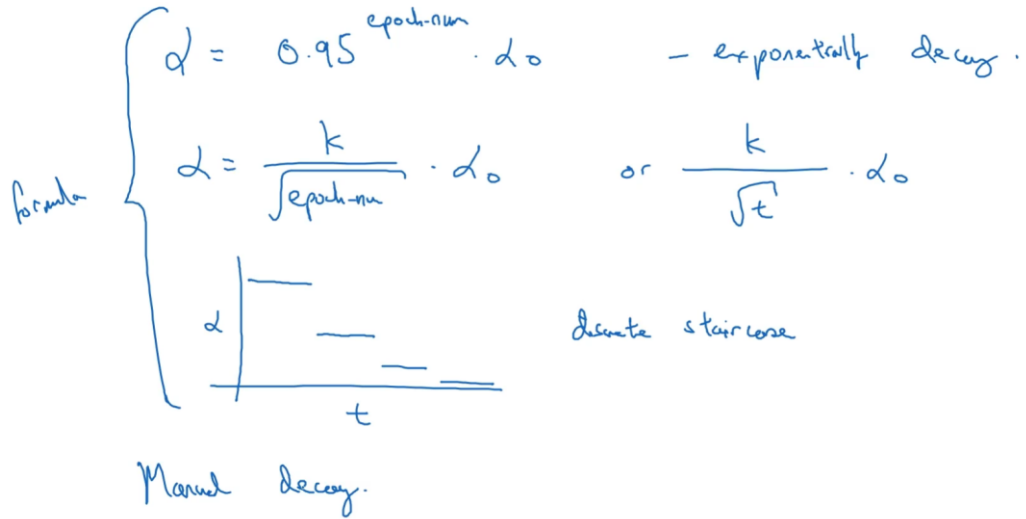 α = 0.95^epoch-num · α₀ - exponentially decay.
α = k / √epoch-num · α₀ or k / √t · α₀
formula
α
discrete staircase
t
Manual decay.